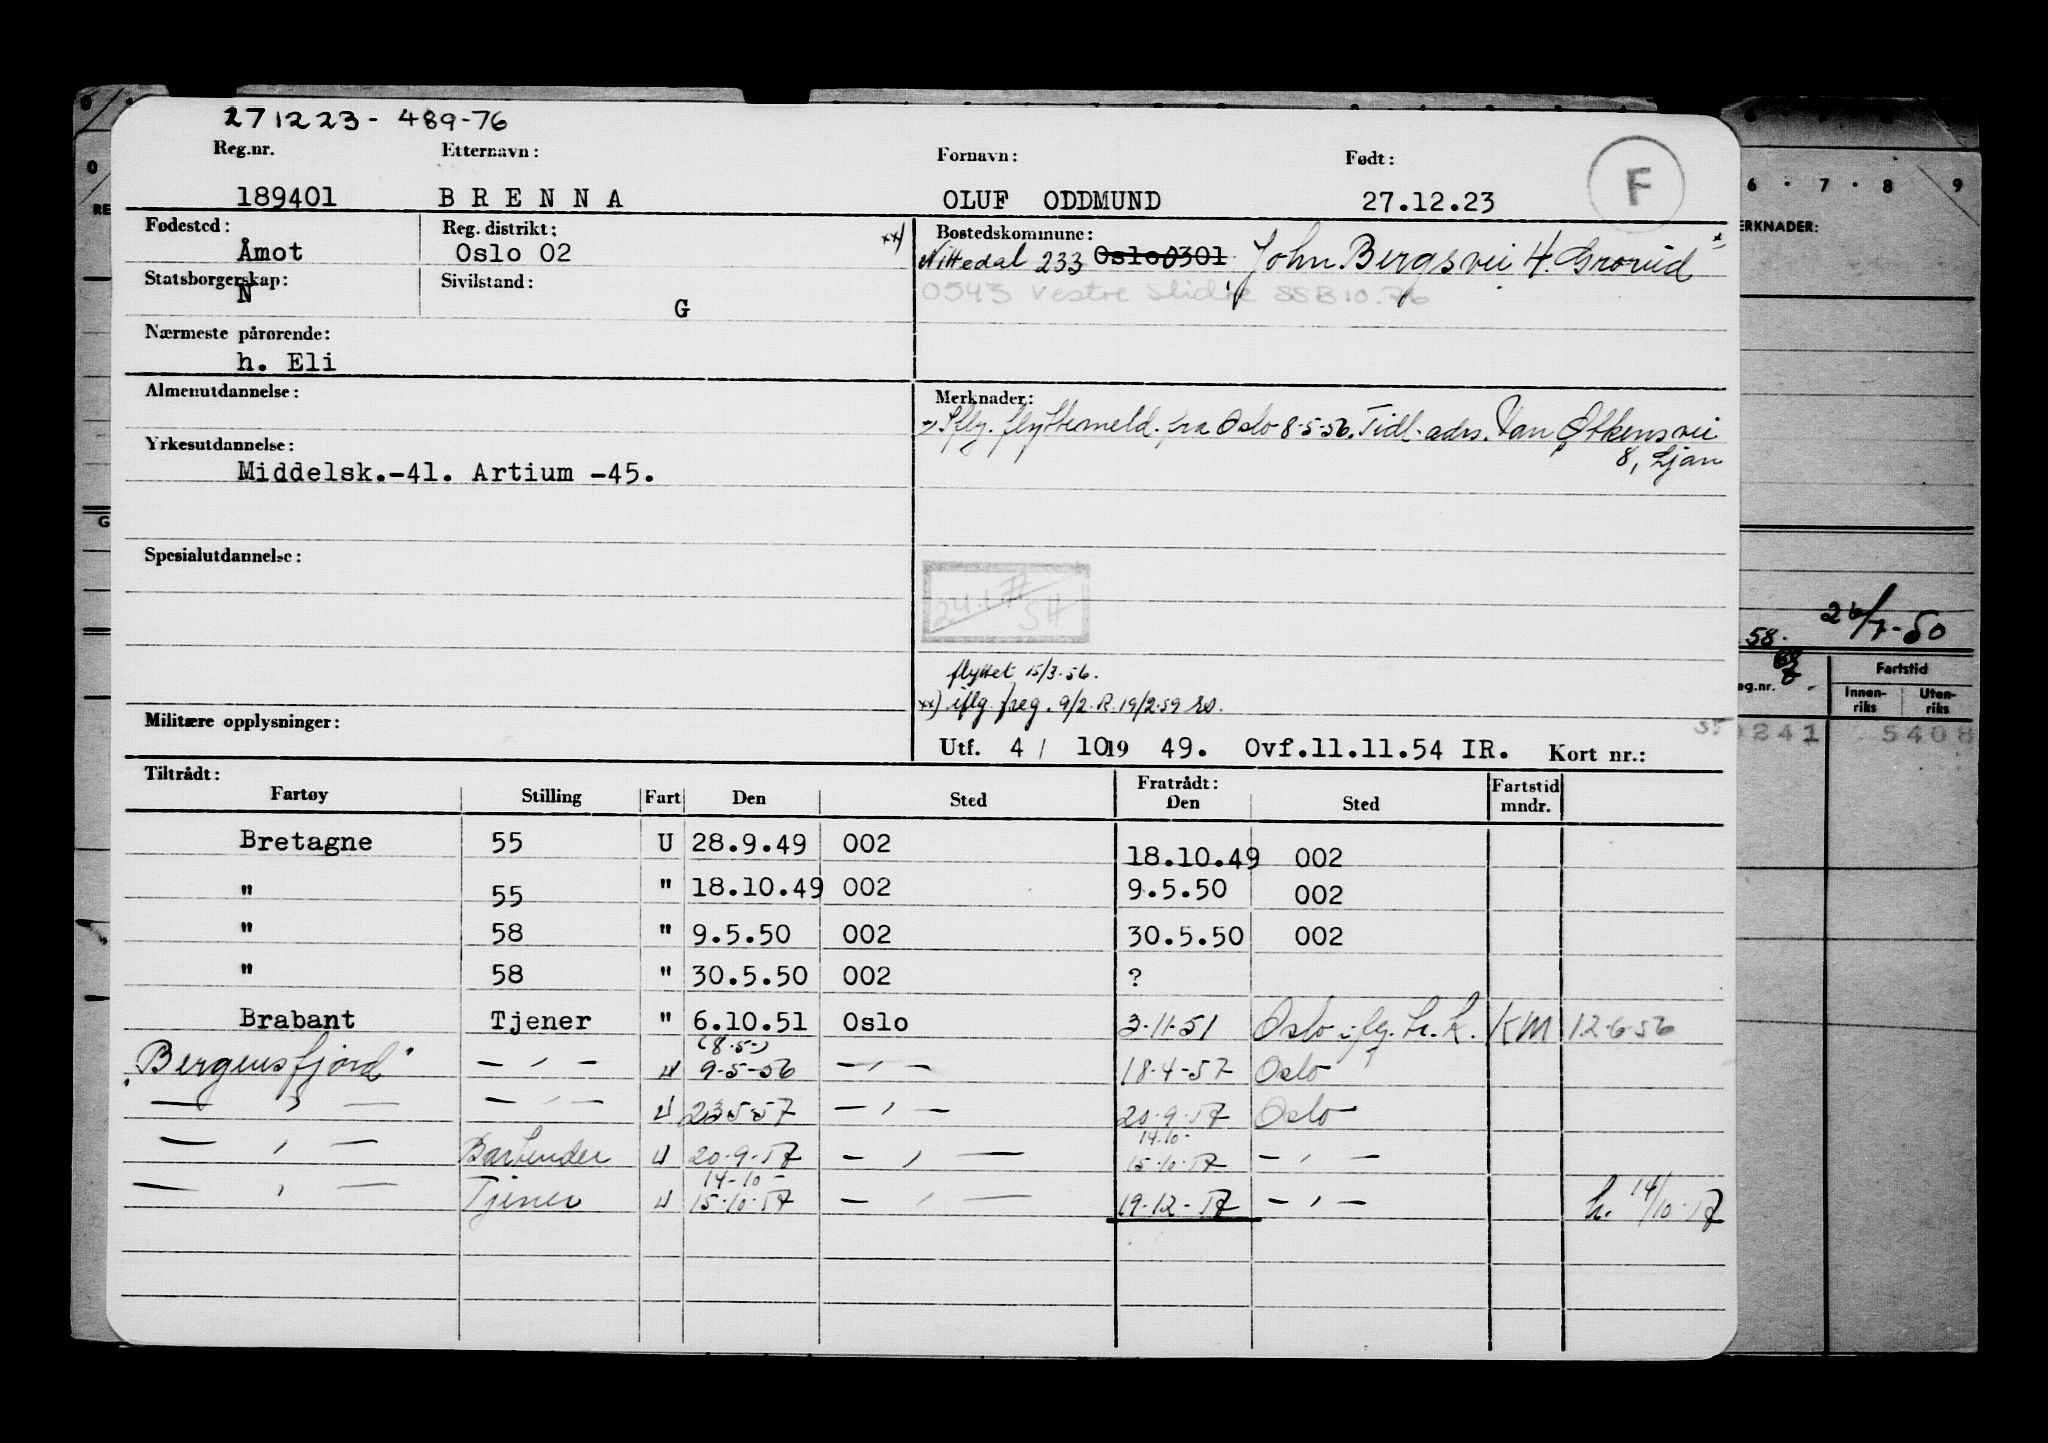 271223- 489-76
Reg.nr. Etternavn: Fornavn: Født:
F
189401 BRENNA OLUF ODDMUND 27.12.23
Fødested: Reg. distrikt: xx) Bostedskommune:
Åmot Oslo 02 Nittedal 233 Oslo 0301 John Bergsvei 4. Grorud
Statsborgerskap: Sivilstand:
N G
0543 Vestre Slidre SSB 10.76
Nærmeste pårørende:
h. Eli
Almenutdannelse: Merknader:
Iflg. flyttemeld. fra Oslo 8-5-56. Tidl. adrs. Van
8, Ljan
Yrkesutdannelse:
Middelsk.-41. Artium -45.
Spesialutdannelse:
flyttet 15/3-56.
xx) iflg. freg. 9/2. R. 19/2-59
Militære opplysninger:
Utf. 4 / 10 19 49. Ovf.11.11.54 IR. Kort nr.:
Tiltrådt: Fratrådt: Fartstid
Fartøy Stilling Fart Den Sted Den Sted mndr.
Bretagne 55 U 28.9.49 002 18.10.49 002
" 55 " 18.10.49 002 9.5.50 002
" 58 " 9.5.50 002 30.5.50 002
" 58 " 30.5.50 002 ?
Brabant Tjener " 6.10.51 Oslo 3-11-51 Oslo iflg. h. k. KM 12-6-56
(8-5-)
"Bergensfjord" — , — U 9-5-56 — , — 18-4-57 Oslo
— , — — , — U 23-5-57 — , — 20-9-57 Oslo
14-10-
— , — Bartender U 20-9-57 — , — 15-10-57 — , —
14-10-
— , — Tjener U 15-10-57 — , — 19-12-57 — , — h. 14/10-57
6 7 8 9
ERKNADER:
58. 26/7-50
eg.nr. Fartstid
Innen- Uten-
riks riks
0241 5408
0
0
RE
G